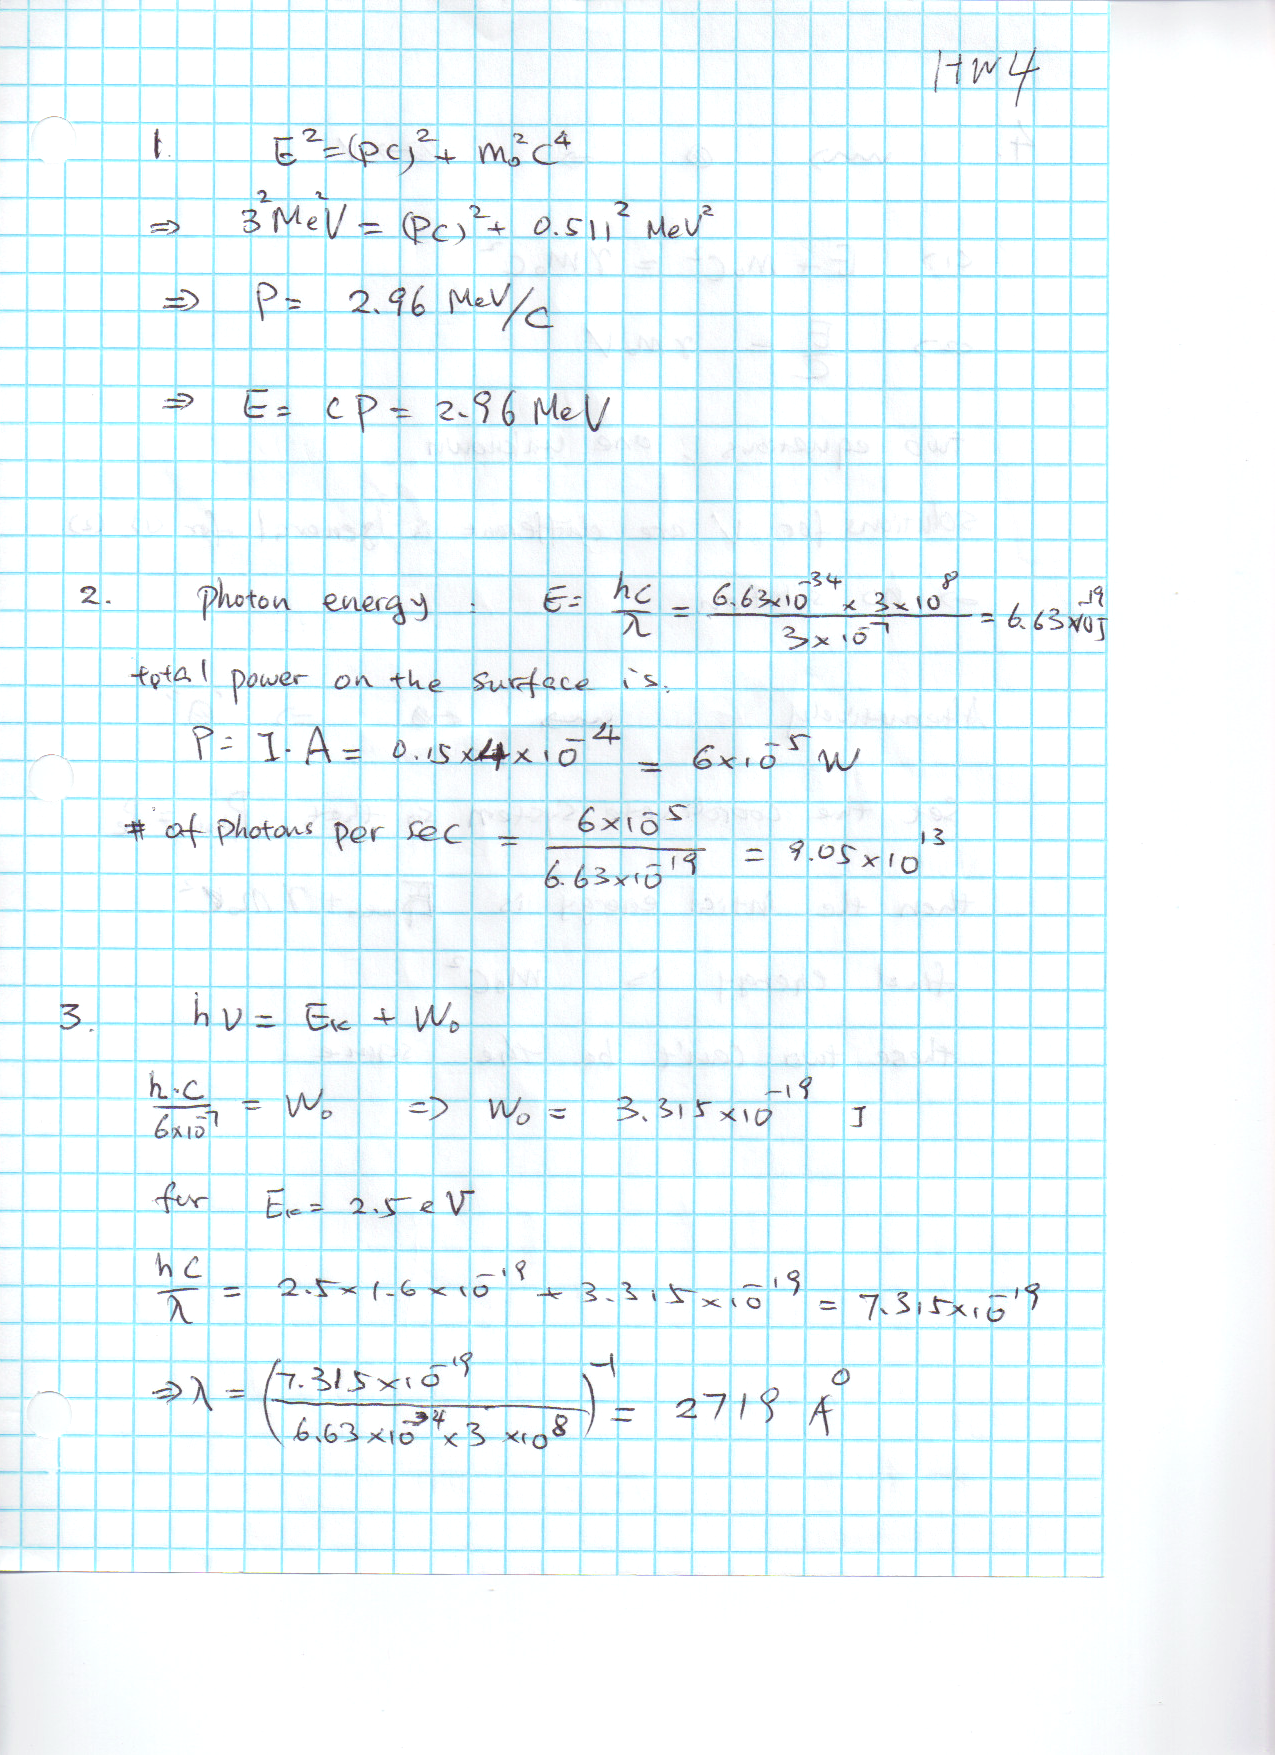 HW4
1. E² = (pc)² + m₀²c⁴
⇒ 3² MeV² = (Pc)² + 0.511² MeV²
⇒ P = 2.96 MeV/c
⇒ E = cP = 2.96 MeV
2. Photon energy : E = hc/λ = (6.63×10⁻³⁴ × 3×10⁸)/(3×10⁻⁷) = 6.63×10⁻¹⁹ J
total power on the surface is.
P = I·A = 0.15×4×10⁻⁴ = 6×10⁻⁵ W
# of photons per sec = (6×10⁻⁵)/(6.63×10⁻¹⁹) = 9.05×10¹³
3. hν = Eₖ + W₀
h·c/(6×10⁻⁷) = W₀ ⇒ W₀ = 3.315×10⁻¹⁹ J
for Eₖ = 2.5 eV
hc/λ = 2.5×1.6×10⁻¹⁹ + 3.315×10⁻¹⁹ = 7.315×10⁻¹⁹
⇒ λ = ((7.315×10⁻¹⁹)/(6.63×10⁻³⁴×3×10⁸))⁻¹ = 2719 Å